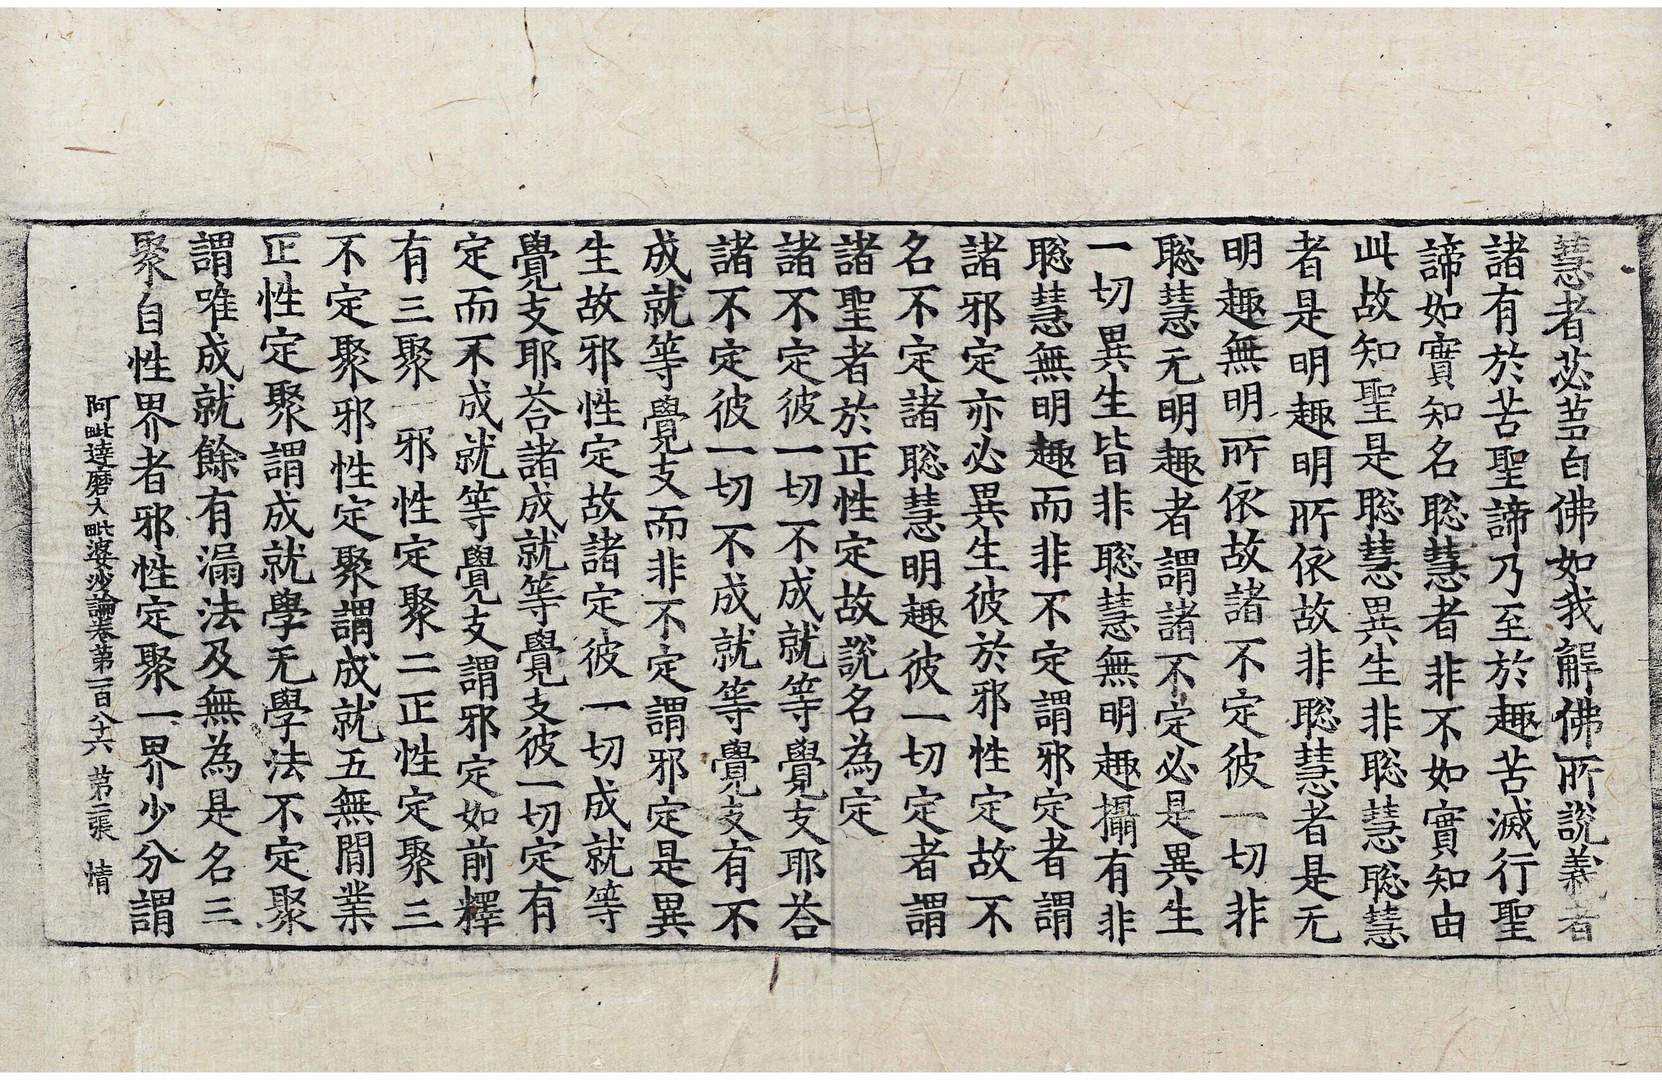 慧者苾芻白佛如我解佛所說義者
諸有於苦聖諦乃至於趣苦滅行聖
諦如實知名聡慧者非不如實知由
此故知聖是聡慧異生非聡慧聡慧
者是明趣明所依故非聡慧者是无
明趣無明所依故諸不定彼一切非
聡慧无明趣者謂諸不定必是異生
一切異生皆非聡慧無明趣攝有非
聡慧無明趣而非不定謂邪定者謂
諸邪定亦必異生彼於邪性定故不
名不定諸聡慧明趣彼一切定者謂
諸聖者於正性定故說名為定
諸不定彼一切不成就等覺支耶荅
諸不定彼一切不成就等覺支有不
成就等覺支而非不定謂邪定是異
生故邪性定故諸定彼一切成就等
覺支耶荅諸成就等覺支彼一切定有
定而不成就等覺支謂邪定如前釋
有三聚一邪性定聚二正性定聚三
不定聚邪性定聚謂成就五無間業
正性定聚謂成就學无學法不定聚
謂唯成就餘有漏法及無為是名三
聚自性界者邪性定聚一界少分謂
阿毗達磨大毗婆沙論卷第一百八十六 第二張 情